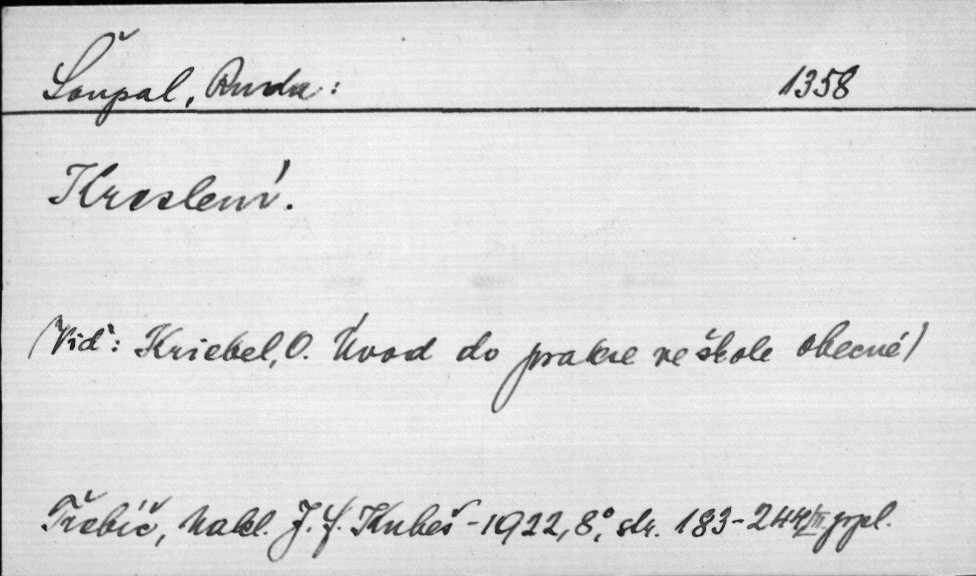 Šoupal, Ruda: 1358
Kreslení.
(Viď: Kriebel, O. Úvod do prakse ve škole obecné)
Třebíč, nakl. J. F. Kubeš - 1922, 8°, str. 183-244